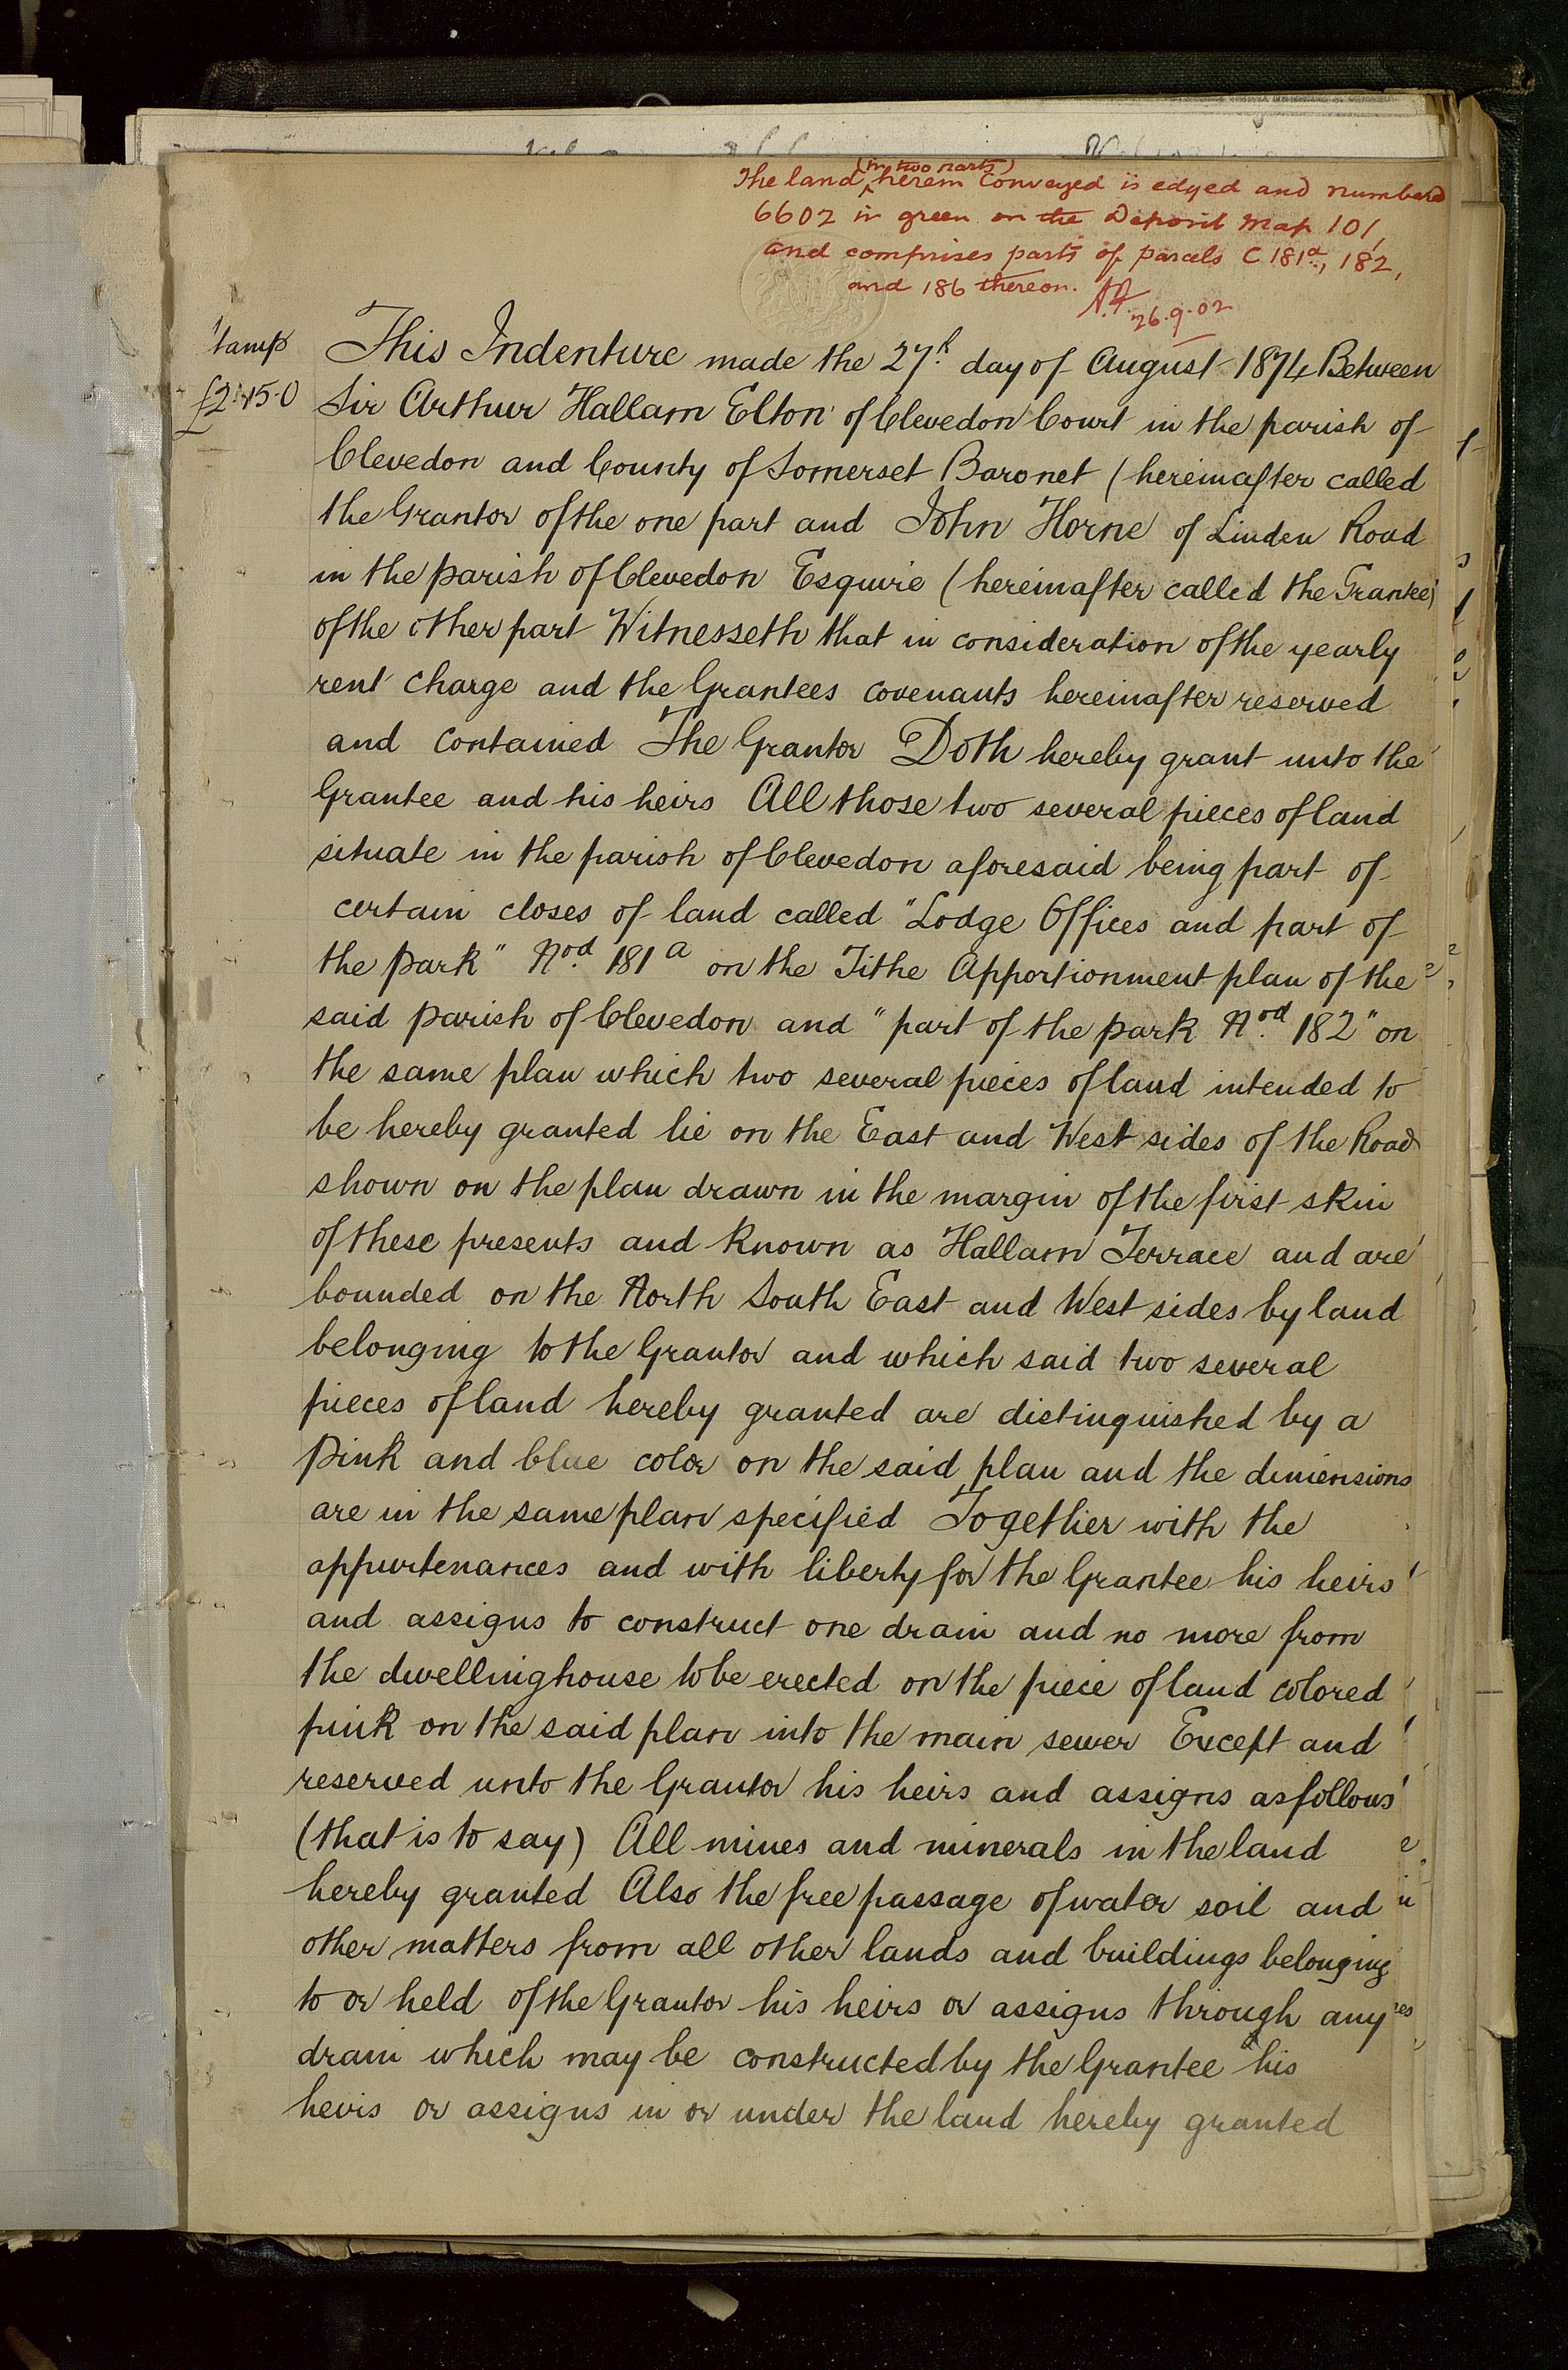 (in two parts)
The land herein conveyed is edged and numbered
6607 in green on the Deposit Map 101,
and comprises parts of parcels C 181a, 182,
and 186 thereon.
26.9.02
Stamp
£2.15.0
This Indenture made the 27th day of August 1874 Between
Sir Arthur Hallam Elton of Clevedon Court in the parish of
Clevedon and County of Somerset Baronet (hereinafter called
the Grantor of the one part and John Horne of Linden Road
in the parish of Clevedon Esquire (hereinafter called the Grantee)
of the other part Witnesseth that in consideration of the yearly
rent charge and the Grantees covenants hereinafter reserved
and contained The Grantor Doth hereby grant unto the
Grantee and his heirs All those two several pieces of land
situate in the parish of Clevedon aforesaid being part of
certain closes of land called "Lodge Offices and part of
the park" Nod. 181a on the Tithe Apportionment plan of the
said parish of Clevedon and "part of the park Nod. 182" on
the same plan which two several pieces of land intended to
be hereby granted lie on the East and West sides of the Road
shown on the plan drawn in the margin of the first skin
of these presents and known as Hallam Terrace and are
bounded on the North South East and West sides by land
belonging to the Grantor and which said two several
pieces of land hereby granted are distinguished by a
pink and blue color on the said plan and the dimensions
are in the same plan specified Together with the
appurtenances and with liberty for the Grantee his heirs
and assigns to construct one drain and no more from
the dwellinghouse to be erected on the piece of land colored
pink on the said plan into the main sewer Except and
reserved unto the Grantor his heirs and assigns as follows
(that is to say) All mines and minerals in the land
hereby granted Also the free passage of water soil and
other matters from all other lands and buildings belonging
to or held of the Grantor his heirs or assigns through any
drain which may be constructed by the Grantee his
heirs or assigns in or under the land hereby granted